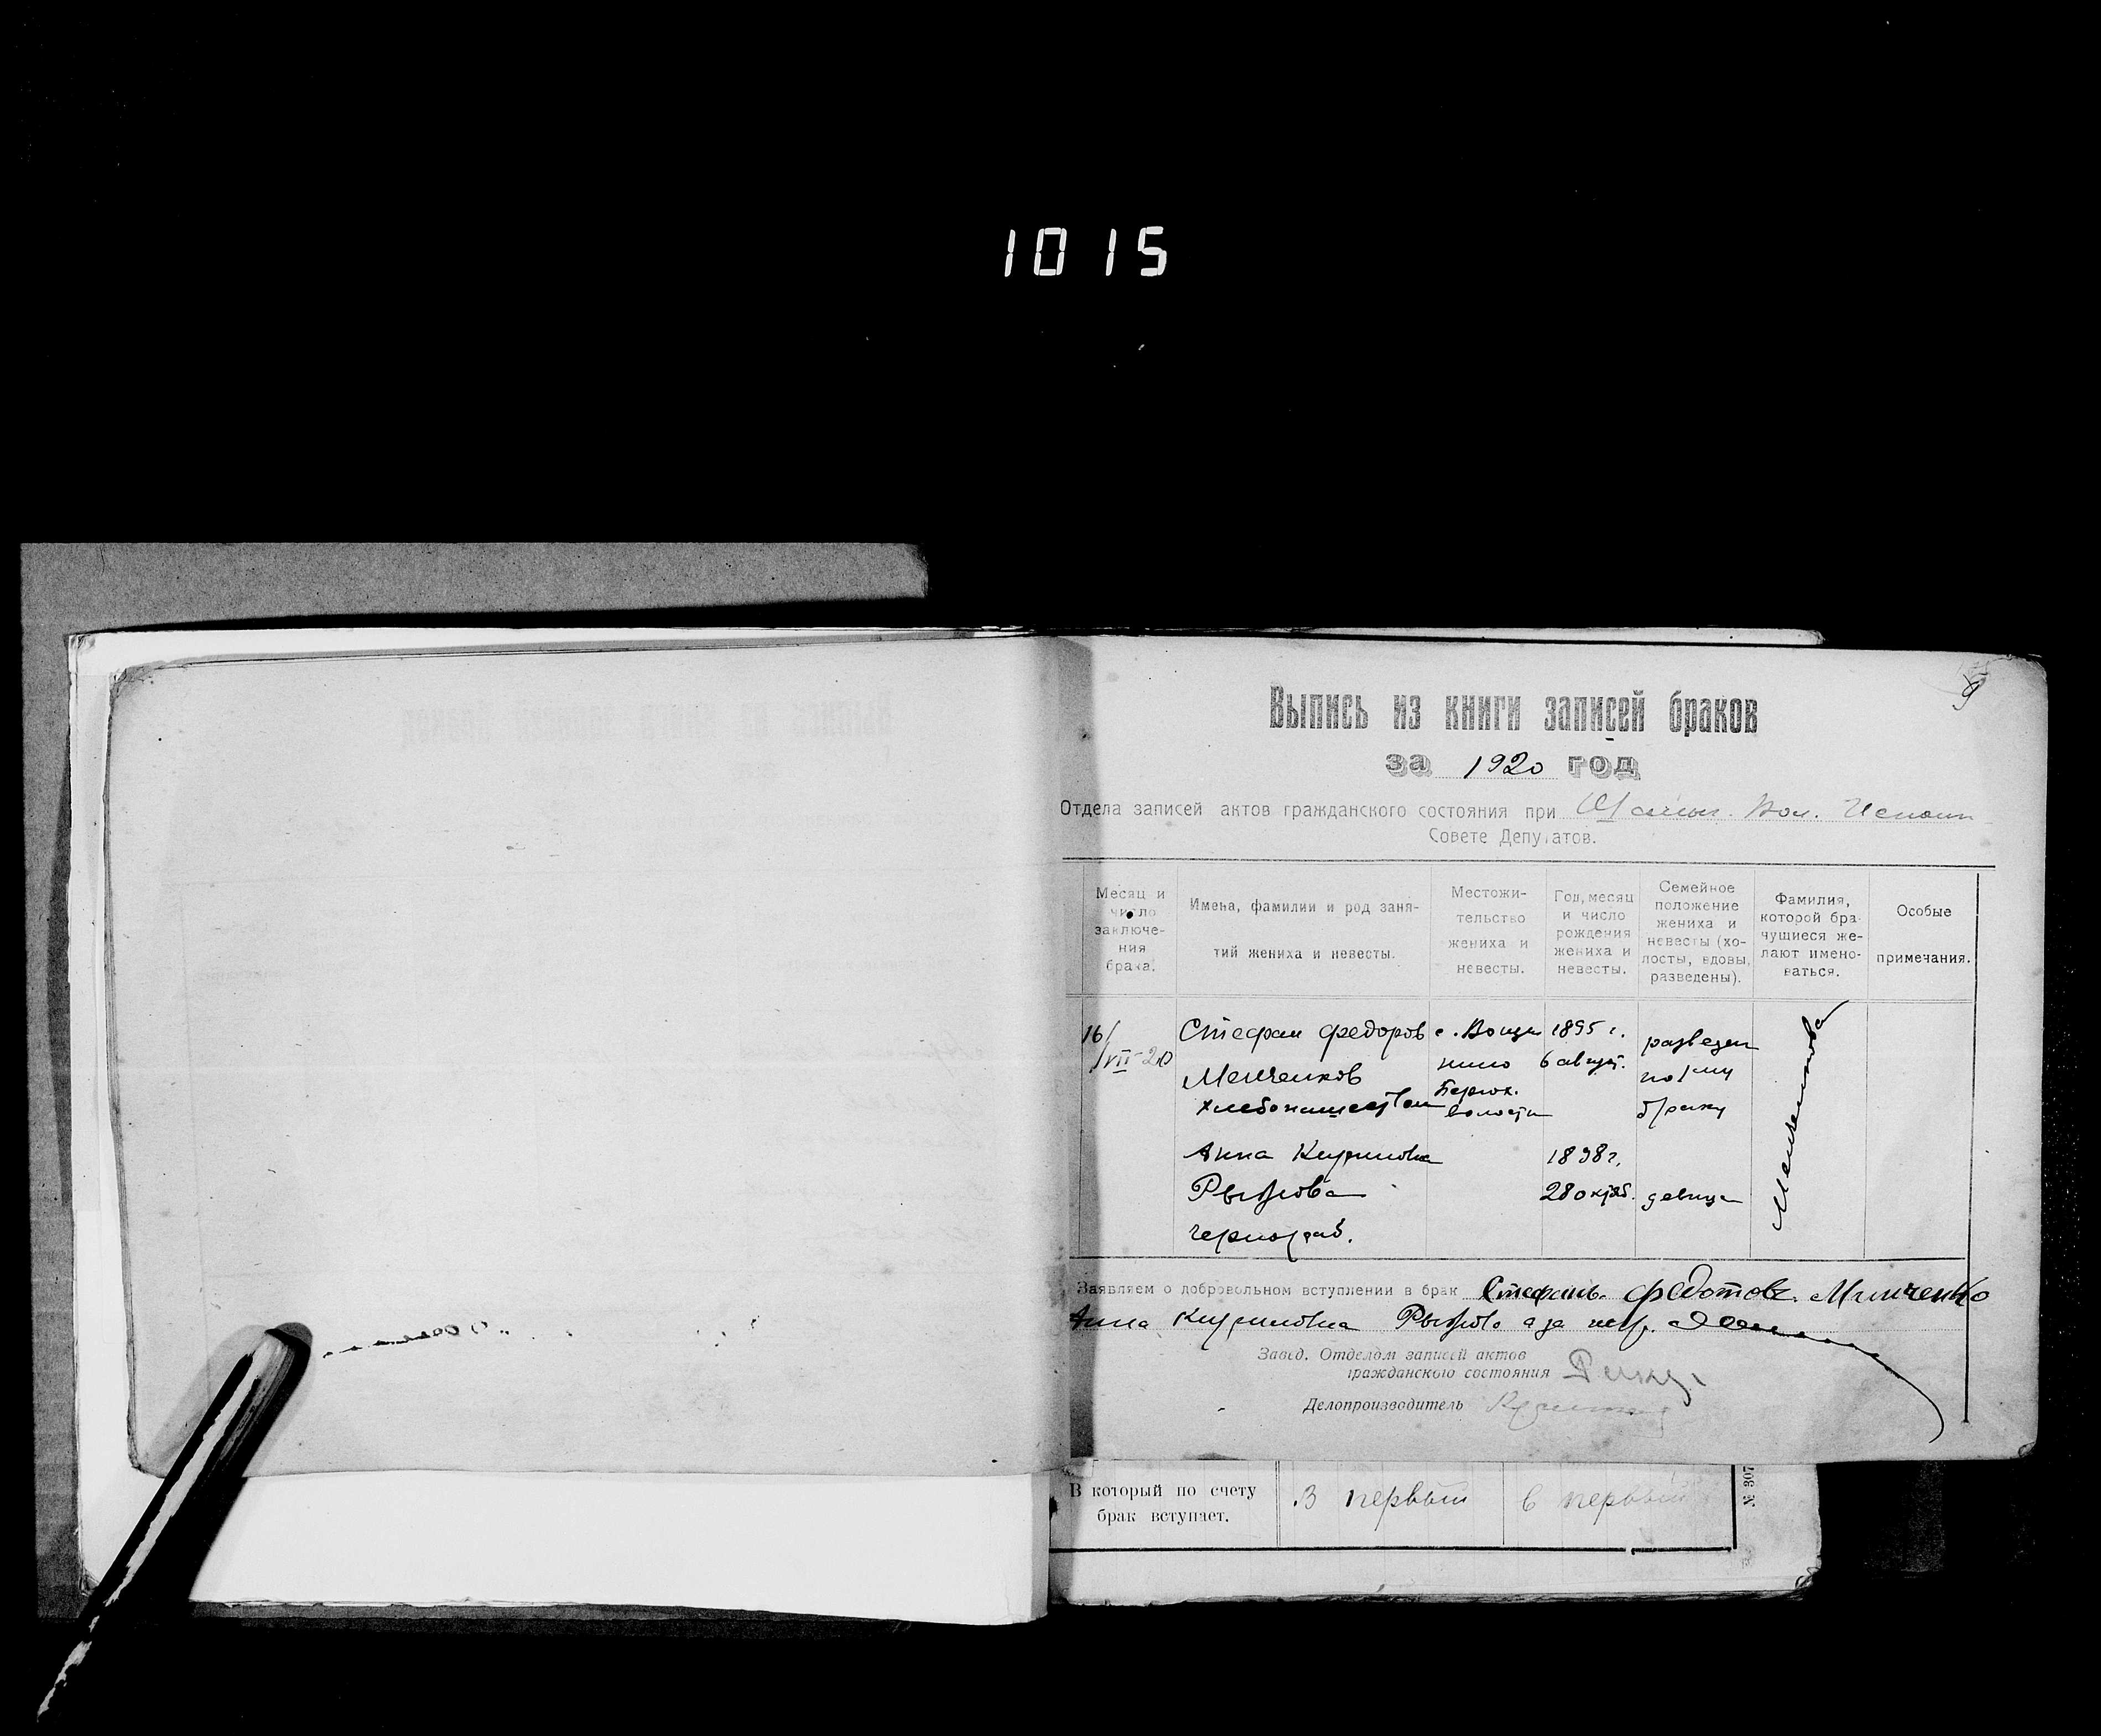 1015
9
Выпись из книги записей браков
за 1920 год
Отдела записей актов гражданского состояния при Вол. Исполн
Совете Депутатов.
Месяц и число заключения брака.
Имена, фамилии и род занятий жениха и невесты.
Местожительство жениха и невесты.
Год, месяц и число рождения жениха и невесты.
Семейное положение жениха и невесты (холосты, вдовы, разведены).
Фамилия, которой брачущиеся желают именоваться.
Особые примечания.
16/VII-20
Стефан Федоров
Менченков
хлебопашеством
с.
волости
1895 г.
6 август.
разведен
по 1му
браку
Анна Кириловна
чернораб.
1898 г.
28 октяб.
девица
Заявляем о добровольном вступлении в брак Стефань Федотовь
Анна Кириловна а за негр.
Завед. Отделом записей актов
гражданского состояния
Делопроизводитель
В который по счету
брак вступает.
В первый
в первый
№ 307